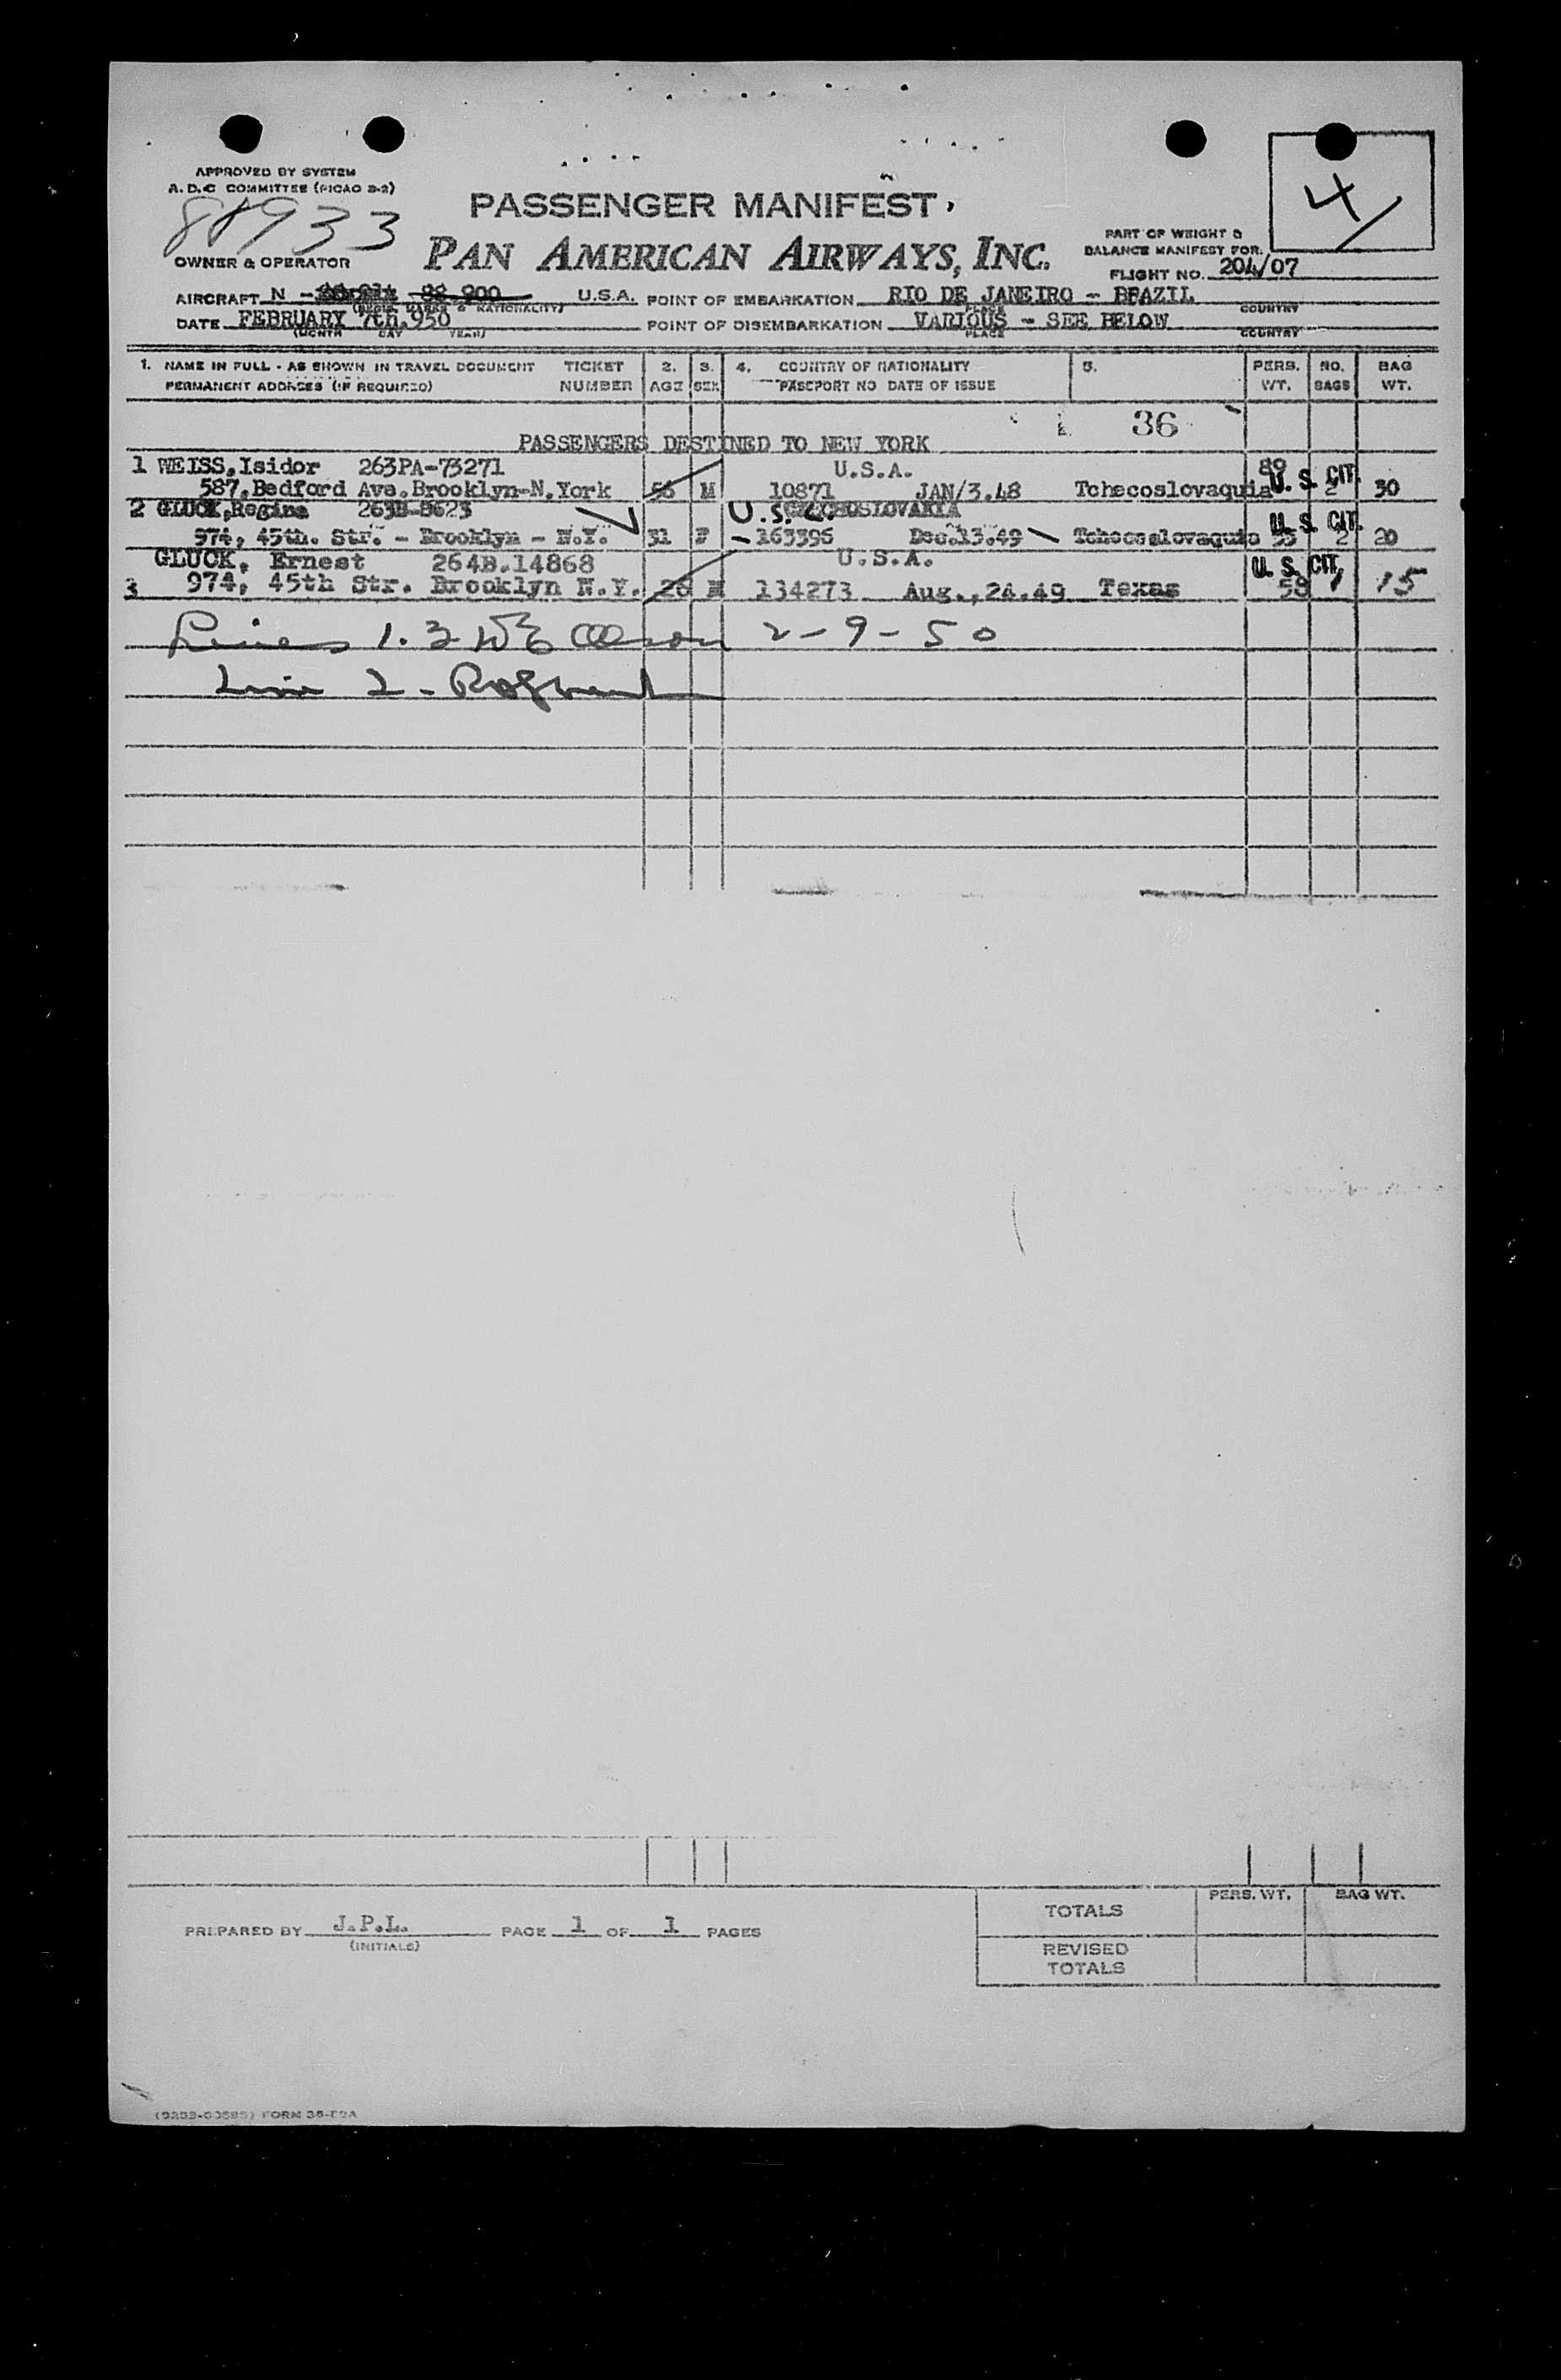 APPROVED BY SYSTEM
A. D. C COMMITTEE (PICAO 2-2)
88933
OWNER & OPERATOR
PASSENGER MANIFEST
PAN AMERICAN AIRWAYS, INC.
4/
PART OF WEIGHT &
BALANCE MANIFEST FOR:
FLIGHT NO. 204/07
AIRCRAFT N - 88.900 U.S.A. POINT OF EMBARKATION RIO DE JANEIRO - BRAZIL
(REGIS. MARKS & NATIONALITY) PLACE COUNTRY
DATE FEBRUARY 7th.950 POINT OF DISEMBARKATION VARIOUS - SEE BELOW
(MONTH DAY YEAR) PLACE COUNTRY
1. NAME IN FULL - AS SHOWN IN TRAVEL DOCUMENT TICKET 2. 3. 4. COUNTRY OF NATIONALITY 5. PERS. NO. BAG
PERMANENT ADDRESS (IF REQUIRED) NUMBER AGE SEX PASSPORT NO DATE OF ISSUE WT. BAGS WT.
36
PASSENGERS DESTINED TO NEW YORK
1 WEISS, Isidor 263PA-73271 U.S.A. 89 U. S. CIT.
587, Bedford Ave. Brooklyn-N.York 56 M 10871 JAN/3.48 Tchecoslovaquia 2 30
2 GLUCK, Regina 263B-8623 U.S.C. CZECHOSLOVAKIA U. S. CIT.
974, 45th. Str. - Brooklyn - N.Y. 31 F 163396 Dec.13.49 Tchecoslovaquia 55 2 20
GLUCK, Ernest 264B.14868 U.S.A. U. S. CIT.
3 974, 45th Str. Brooklyn N.Y. 28 M 134273 Aug.,24.49 Texas 58 1 15
Lines 1. 3 2-9-50
Line 2 -
PREPARED BY J.P.L. PAGE 1 OF 1 PAGES
(INITIALS)
PERS. WT. BAG WT.
TOTALS
REVISED
TOTALS